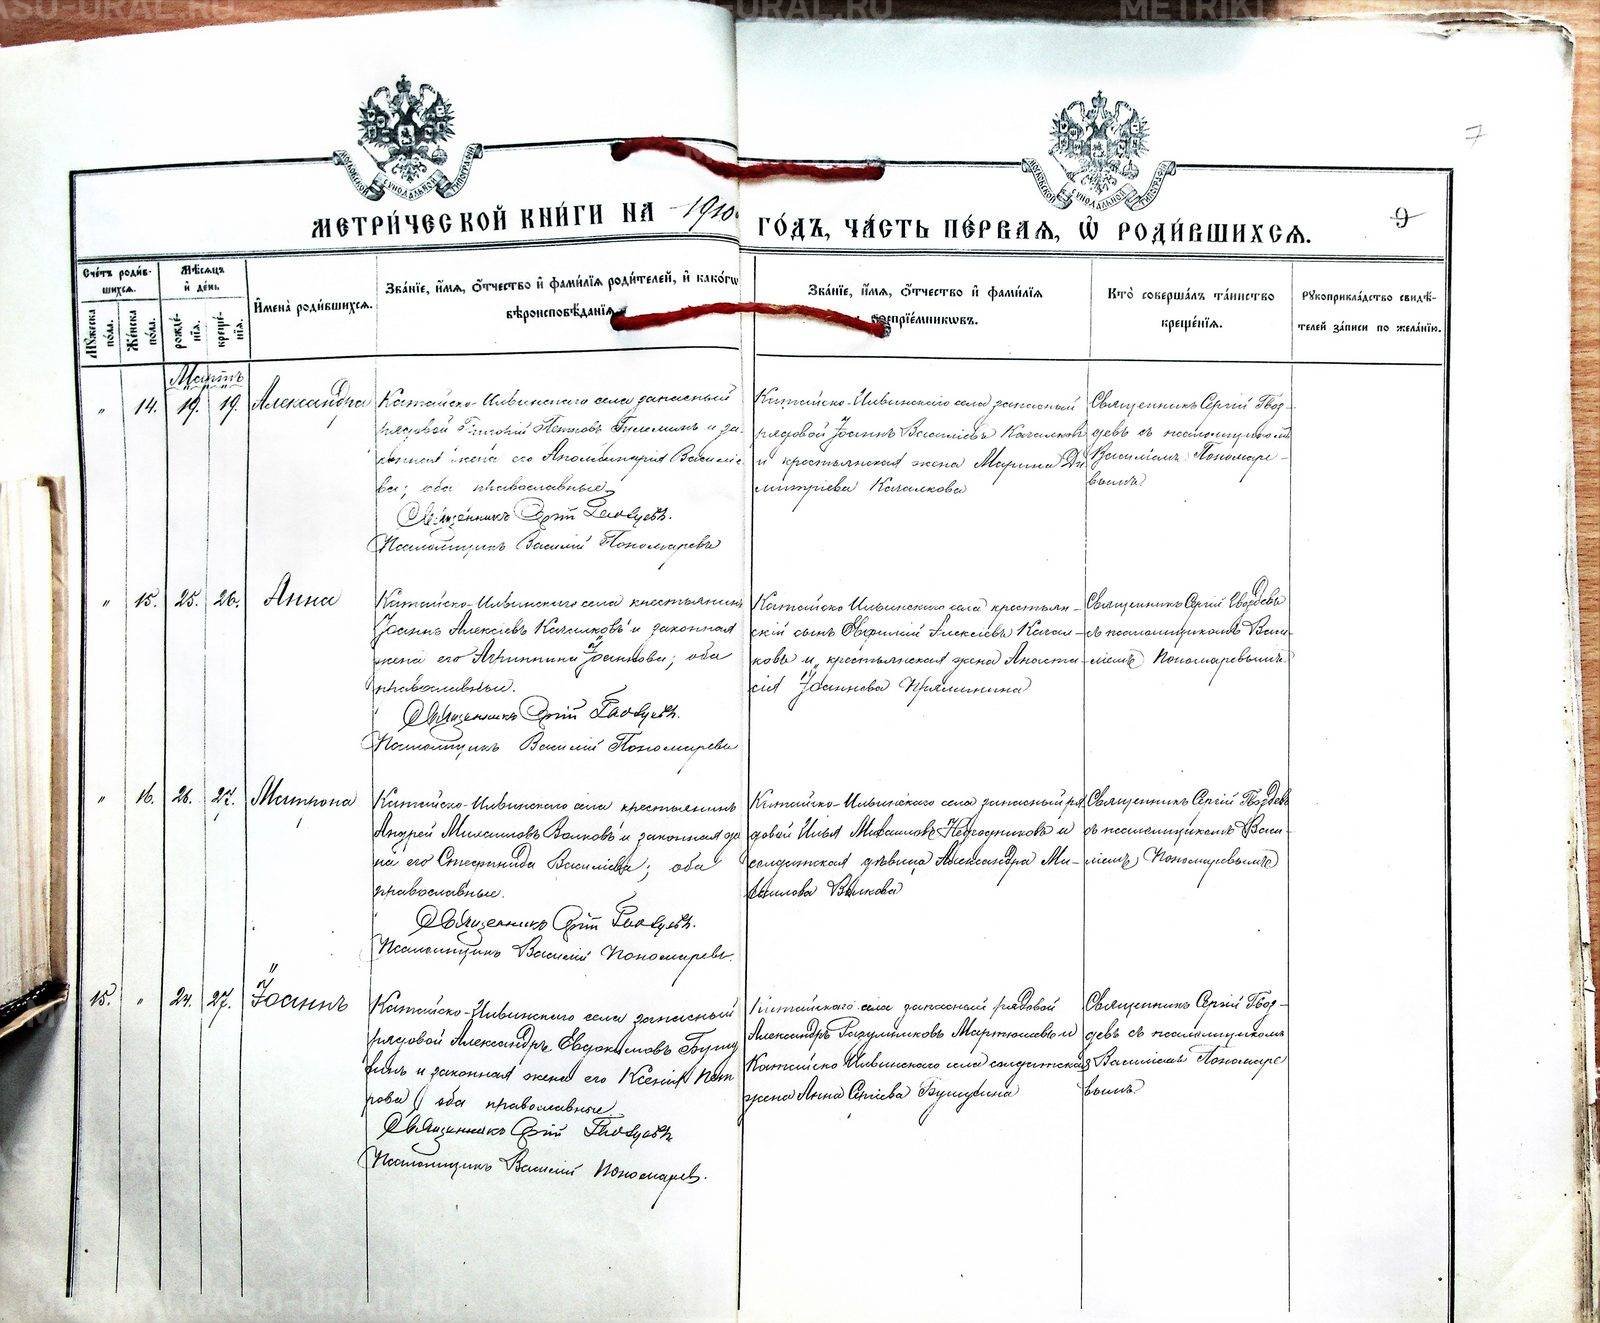 METRIKI.GASO-URAL.RU
7
МОСКОВСКОЙ СѴНОДАЛЬНОЙ ТИПОГРАФІИ
МОСКОВСКОЙ СѴНОДАЛЬНОЙ ТИПОГРАФІИ
МЕТРИ́ЧЕСКОЙ КНИ́ГИ НА 1910 ГО́ДЪ, ЧА́СТЬ ПЕ́РВАЯ, Ѡ РОДИ́ВШИХСЯ.
9
Сче́тъ роди́в-
шихся.
Мѣ́сяцъ
и де́нь.
Мꙋ́жеска
по́ла.
Же́нска
по́ла.
рожде́-
нїя.
креще́-
нїя.
Имена̀ роди́вшихся.
Зва́нїе, и́мя, о́тчество и фами́лїя роди́телей, и како́гѡ
вѣроисповѣ́данїя.
Зва́нїе, и́мя, о́тчество и фами́лїя
воспрїе́мникѡвъ.
Кто̀ соверша́лъ та́инство
креще́нїя.
Рꙋкоприкла́дство свидѣ́-
телей за́писи по жела́нїю.
Мартъ
" 14. 19. 19. Александра
Катайско-Ильинскаго села запасный
рядовой Григорій Петровъ и за-
конная жена его Аполлинарія Василіе-
ва; оба православные.
Священникъ Сергій Гвоздевъ.
Псаломщикъ Василій Пономаревъ
Катайско-Ильинскаго села запасный
рядовой Іоаннъ Василіевъ Качалковъ
и крестьянская жена Марина Ди
митріева Качалкова
Священникъ Сергій Гвоз-
девъ съ псаломщикомъ
Василіемъ Пономаре-
вымъ
" 15. 25. 26. Анна
Катайско-Ильинскаго села крестьянинъ
Іоаннъ Алексіевъ Качалковъ и законная
жена его Агриппина Іоаннова; оба
православные.
Священникъ Сергій Гвоздевъ.
Псаломщикъ Василій Пономаревъ
Катайско Ильинскаго села крестьян-
скій сынъ Евфимій Алексіевъ Качал-
ковъ и крестьянская жена Анаста
сія Іоаннова
Священникъ Сергій Гвоздевъ
съ псаломщикомъ Васи-
ліемъ Пономаревымъ
" 16. 26. 27. Матрона
Катайско-Ильинскаго села крестьянинъ
Андрей Михаиловъ Волковъ и законная же
на его Стефанида Василіева; оба
православные.
Священникъ Сергій Гвоздевъ.
Псаломщикъ Василій Пономаревъ.
Катайско-Ильинскаго села запасный ря
довой Илья Михаиловъ и
солдатская дѣвица Александра Ми-
хаилова Волкова
Священникъ Сергій Гвоздевъ
съ псаломщикомъ Васи-
ліемъ Пономаревымъ
15. " 24. 27. Іоаннъ
Катайско-Ильинскаго села запасный
рядовой Александръ Евдокимовъ Бушу
евъ и законная жена его Ксенія Пет
рова, оба православные
Священникъ Сергій Гвоздевъ
Псаломщикъ Василій Пономаревъ.
Катайскаго села запасный рядовой
Александръ и
Катайско Ильинскаго села солдатская
жена Анна Сергіева Бушуева
Священникъ Сергій Гвоз-
девъ съ псаломщикомъ
Василіемъ Пономаре
вымъ